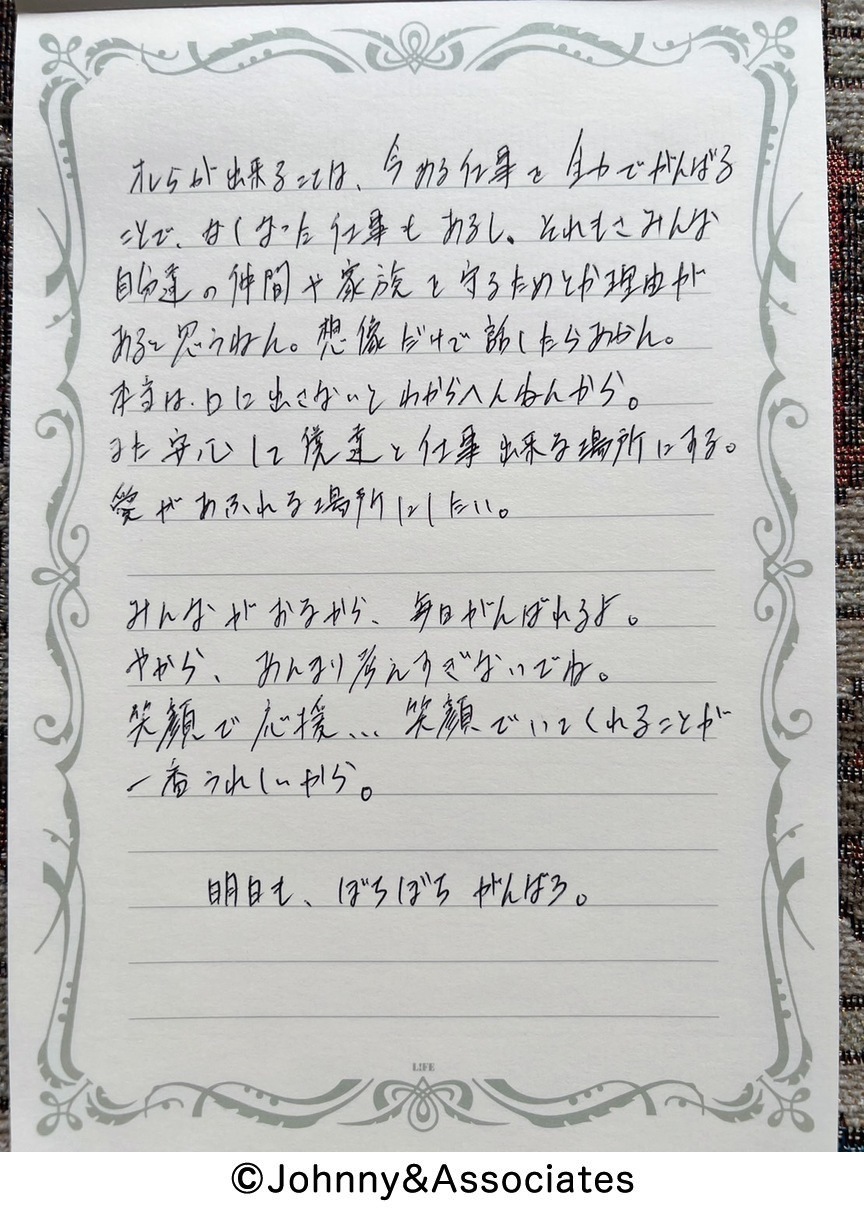 オレらが出来ることは、今ある仕事を全力でがんばる
ことで、なくなった仕事もあるし、それもさみんな
自分達の仲間や家族を守るためとか理由が
あると思うねん。想像だけで話したらあかん。
本当は、口に出さないとわからへんねんから。
また安心して僕達と仕事出来る場所にする。
愛があふれる場所にしたい。
みんながおるから、毎日がんばれるよ。
やから、あんまり考えすぎないでね。
笑顔で応援...笑顔でいてくれることが
一番うれしいから。
明日も、ぼちぼちがんばろ。
LIFE
©Johnny&Associates